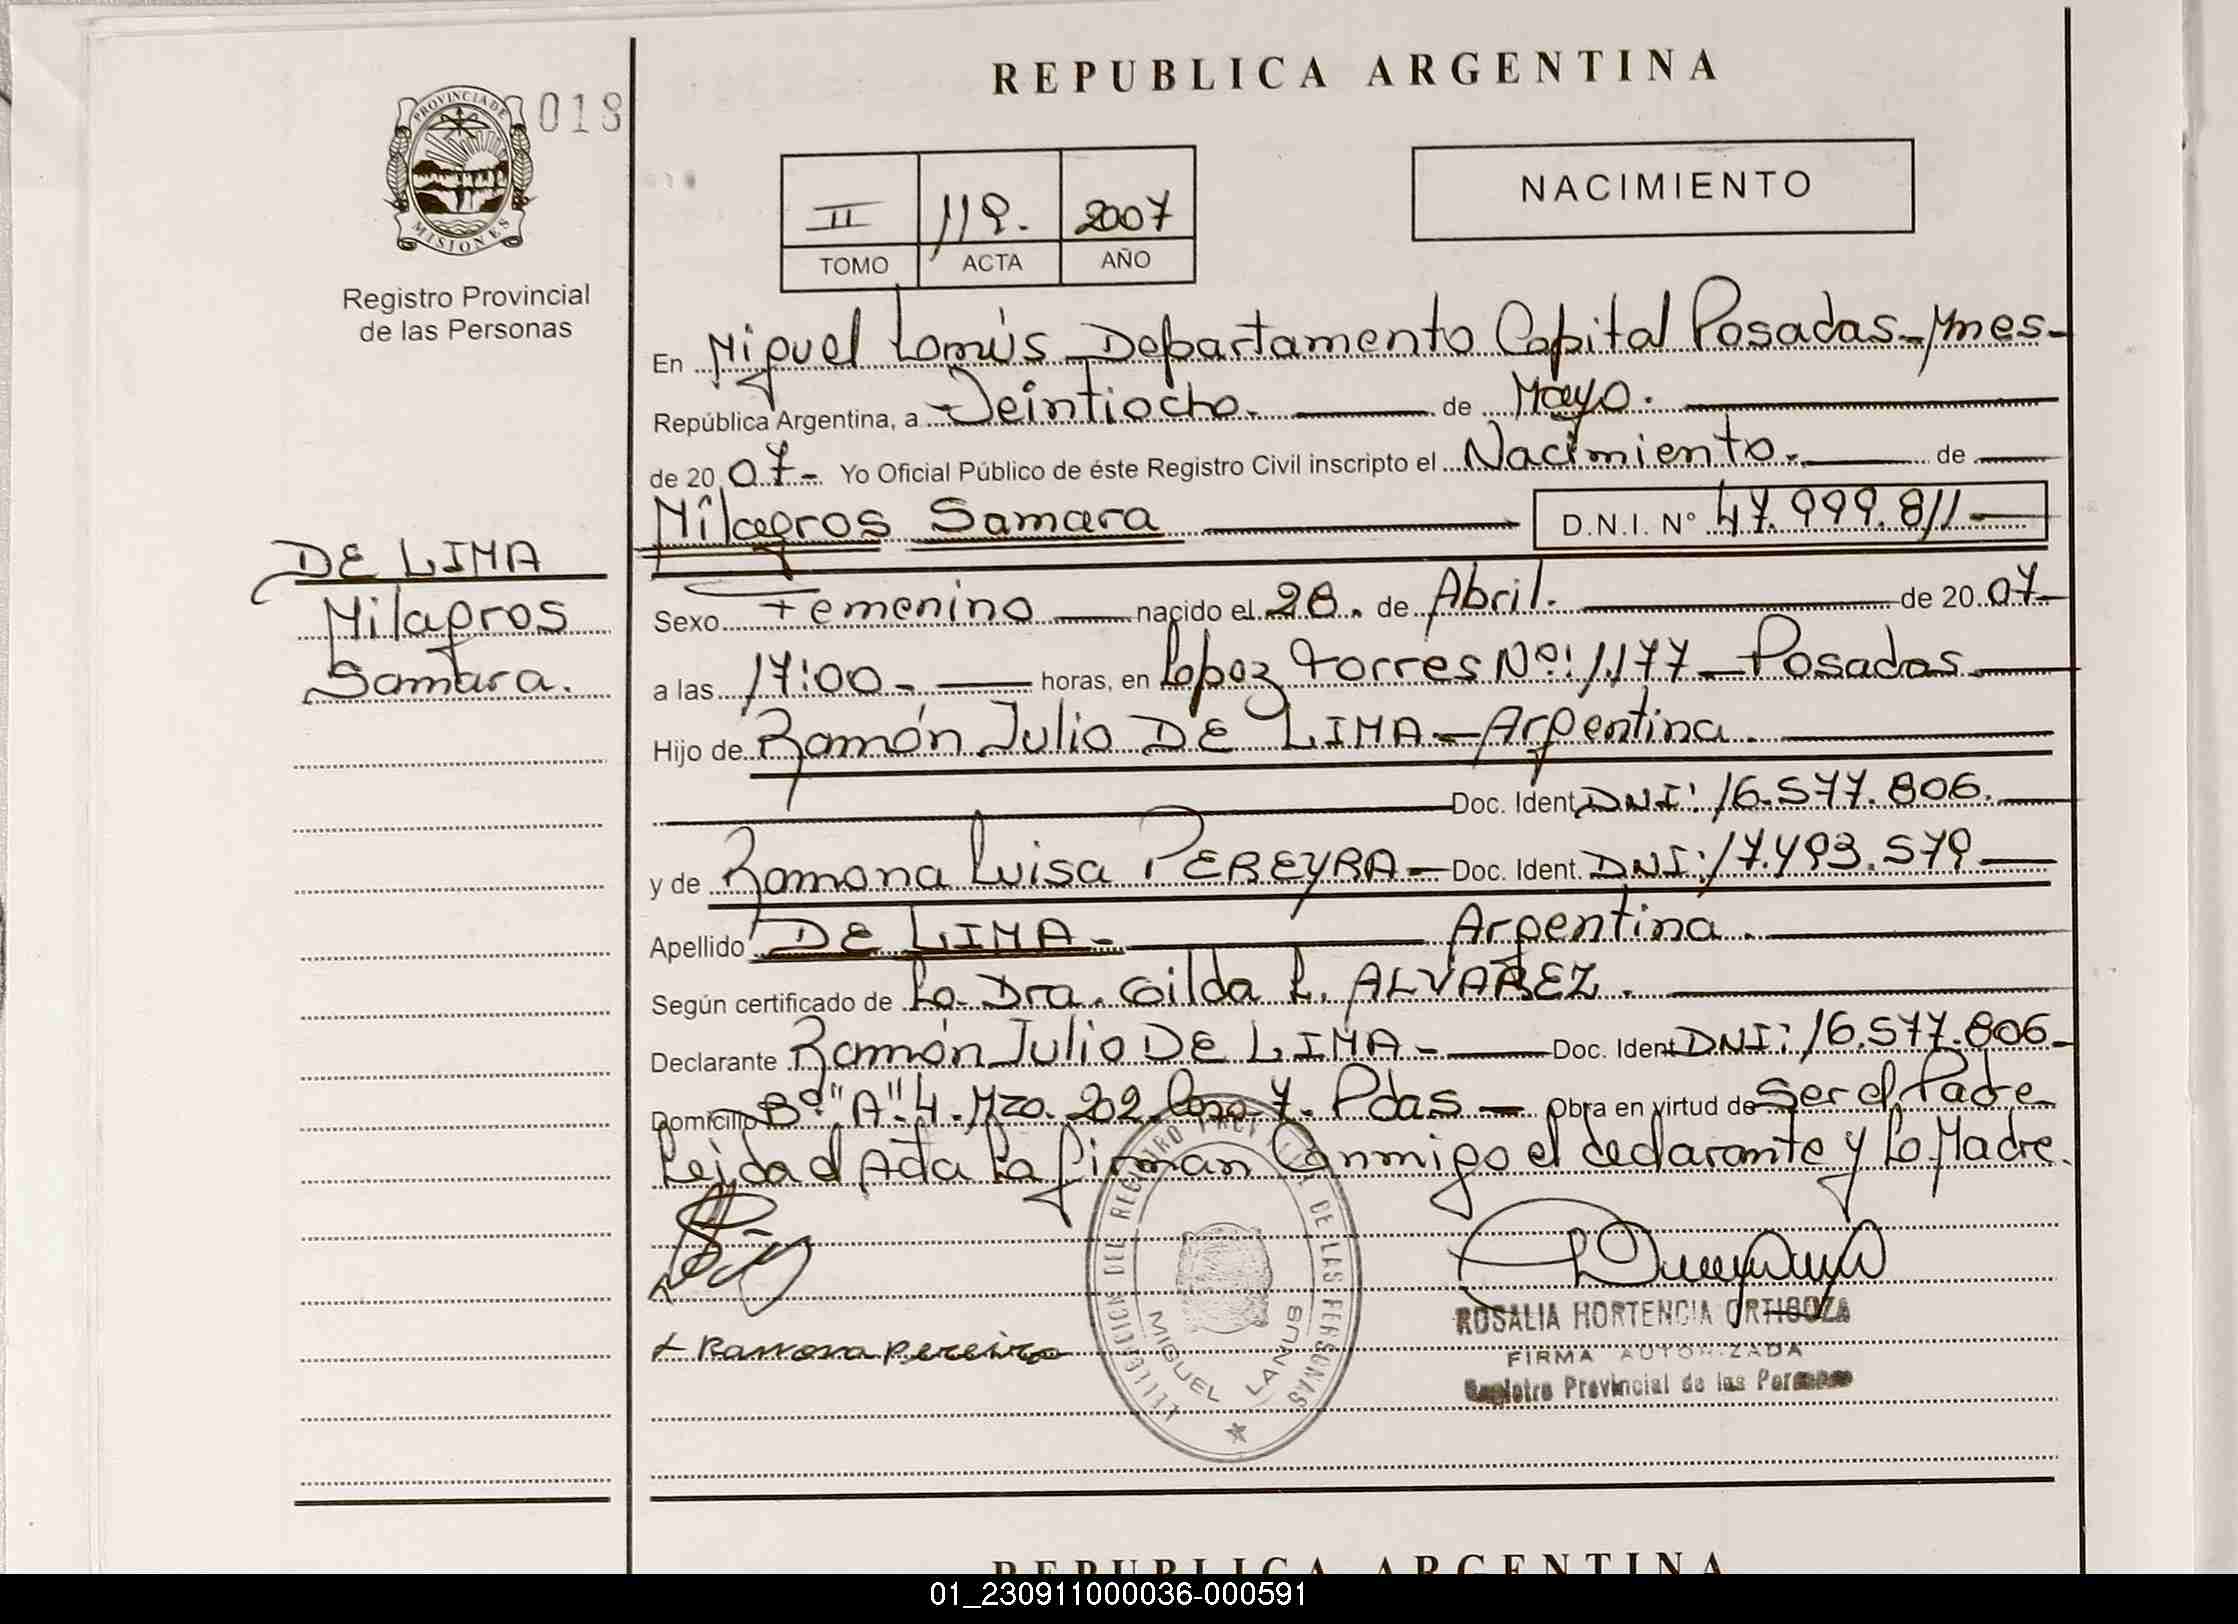 REPUBLICA ARGENTINA
PROVINCIA DE
MISIONES
018
Registro Provincial
de las Personas
II 119. 2007
TOMO ACTA AÑO
NACIMIENTO
En Miguel Lanús Departamento Capital Posadas-Mnes-
República Argentina, a Veintiocho. de Mayo.
de 20 07- Yo Oficial Público de éste Registro Civil inscripto el Nacimiento. de
Milagros Samara D.N.I. N° 47.999.811
DE LIMA
Milagros
Samara.
Sexo Femenino nacido el 28. de Abril. de 20 07-
a las 17:00- horas, en Lopez Torres Nº: 1.177- Posadas
Hijo de Ramón Julio DE LIMA - Argentina.
Doc. Ident. DNI: 16.577.806.
y de Ramona Luisa PEREYRA - Doc. Ident. DNI: 17.493.579
Apellido DE LIMA- Argentina.
Según certificado de La Dra. Gilda L. ALVAREZ.
Declarante Ramón Julio DE LIMA- Doc. Ident. DNI: 16.577.806-
Domicilio Bº "A". 4. Mza. 202. Casa 7. Pdas - Obra en virtud de Ser el Padre
Leida el Acta la firman Conmigo el declarante y la Madre.
DEL REGISTRO PROVINCIAL DE LAS PERSONAS
MIGUEL LANUS
Ramona Pereira
ROSALIA HORTENCIA ORTIGOZA
FIRMA AUTORIZADA
Registro Provincial de las Personas
REPUBLICA ARGENTINA
01_230911000036-000591